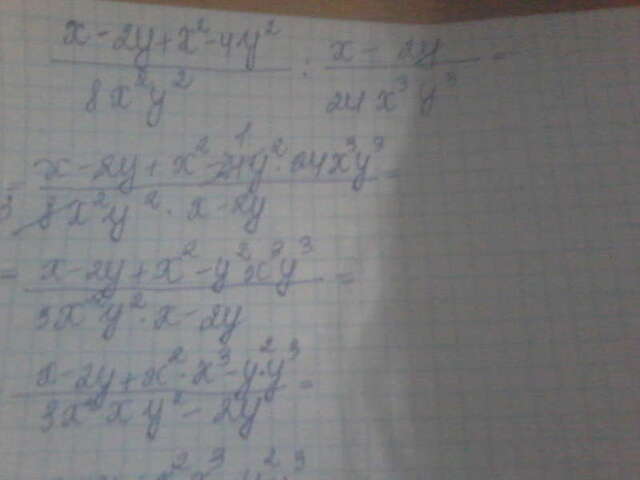 x-2y+x²-4y² / 8x²y² : x-2y / 24x³y³ =
= x-2y+x²-4y²·24x³y³ / 8x²y²·x-2y =
= x-2y+x²-y²x³y³ / 3x²y²·x-2y =
x-2y+x²·x³-y²y³ / 3x²xy²-2y =